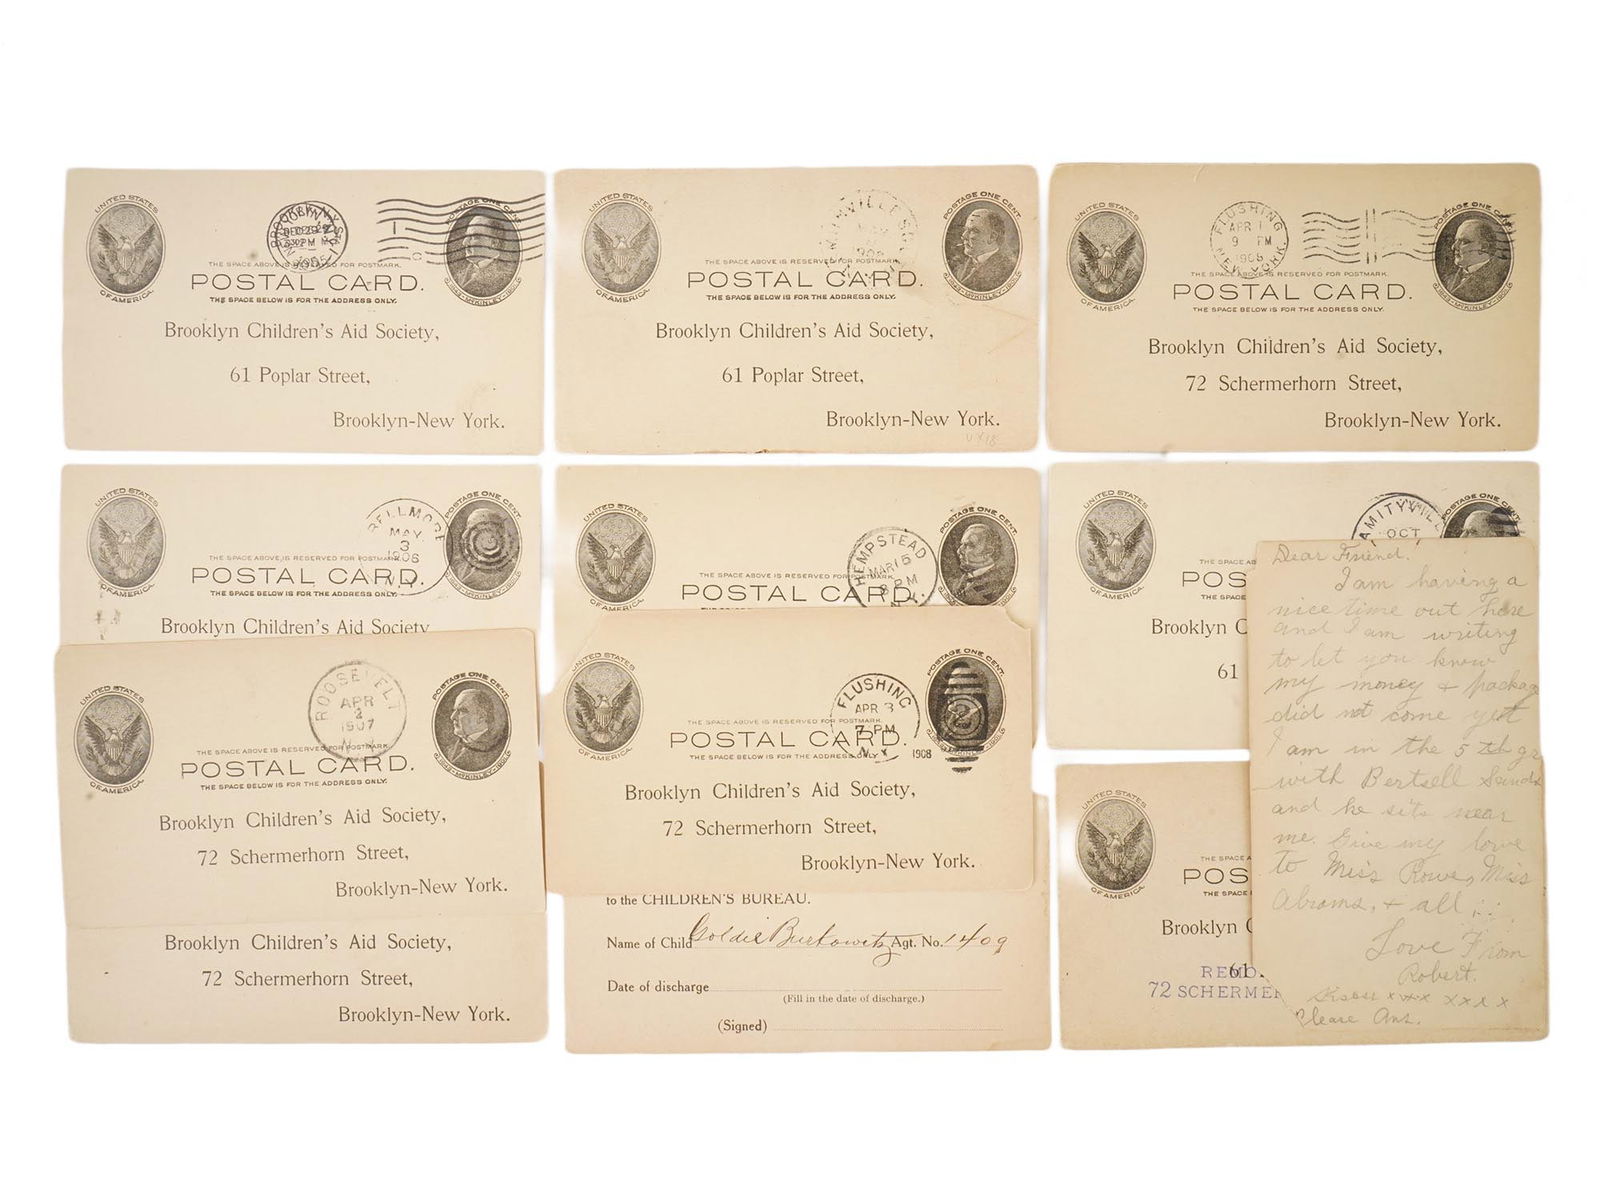 UNITED STATES
OF AMERICA.
BROOKLYN, N.Y.
DEC 29
1905
POSTAGE ONE CENT.
THE SPACE ABOVE IS RESERVED FOR POSTMARK.
POSTAL CARD.
THE SPACE BELOW IS FOR THE ADDRESS ONLY.
Brooklyn Children's Aid Society,
61 Poplar Street,
Brooklyn-New York.
UNITED STATES
OF AMERICA.
POSTAGE ONE CENT.
1843-McKINLEY-1901
THE SPACE ABOVE IS RESERVED FOR POSTMARK.
POSTAL CARD.
THE SPACE BELOW IS FOR THE ADDRESS ONLY.
Brooklyn Children's Aid Society,
61 Poplar Street,
Brooklyn-New York.
UX18
UNITED STATES
OF AMERICA.
FLUSHING
APR 1
9 PM
NEW YORK.
POSTAGE ONE CENT.
1843-McKINLEY-1901
THE SPACE ABOVE IS RESERVED FOR POSTMARK.
POSTAL CARD.
THE SPACE BELOW IS FOR THE ADDRESS ONLY.
Brooklyn Children's Aid Society,
72 Schermerhorn Street,
Brooklyn-New York.
UNITED STATES
OF AMERICA.
BELLMORE
MAY
3
POSTAGE ONE CENT.
THE SPACE ABOVE IS RESERVED FOR POSTMARK.
POSTAL CARD.
THE SPACE BELOW IS FOR THE ADDRESS ONLY.
Brooklyn Children's Aid Society
UNITED STATES
OF AMERICA.
HEMPSTEAD
MAR 15
8 PM
POSTAGE ONE CENT.
THE SPACE ABOVE IS RESERVED FOR POSTMARK.
POSTAL CARD.
UNITED STATES
OF AMERICA.
AMITYVILLE
OCT
POSTAGE ONE CENT.
THE SPACE
POS
THE SPACE
Brooklyn C
61
UNITED STATES
OF AMERICA.
ROOSEVELT
APR
2
1907
N.Y.
POSTAGE ONE CENT.
1843-McKINLEY-1901
THE SPACE ABOVE IS RESERVED FOR POSTMARK.
POSTAL CARD.
THE SPACE BELOW IS FOR THE ADDRESS ONLY.
Brooklyn Children's Aid Society,
72 Schermerhorn Street,
Brooklyn-New York.
Brooklyn Children's Aid Society,
72 Schermerhorn Street,
Brooklyn-New York.
UNITED STATES
OF AMERICA.
FLUSHING
APR 3
7 PM
N.Y.
1908
2
POSTAGE ONE CENT.
1843-McKINLEY-1901
THE SPACE ABOVE IS RESERVED FOR POSTMARK.
POSTAL CARD.
THE SPACE BELOW IS FOR THE ADDRESS ONLY.
Brooklyn Children's Aid Society,
72 Schermerhorn Street,
Brooklyn-New York.
to the CHILDREN'S BUREAU.
Name of Child Goldie Burkowitz Agt. No. 1409
Date of discharge
(Fill in the date of discharge.)
(Signed)
UNITED STATES
OF AMERICA.
THE SPACE A
POS
THE SPACE
Brooklyn C
61
REMO
72 SCHERMER
Dear Friend.
I am having a
nice time out here
and I am writing
to let you know
my money & package
did not come yet
I am in the 5th gr
with Bertsell Sands
and he sits near
me. Give my love
to Miss Rowe, Miss
Abrams, & all
Love From
Robert.
Kisses x x x x x x x
Please Ans.